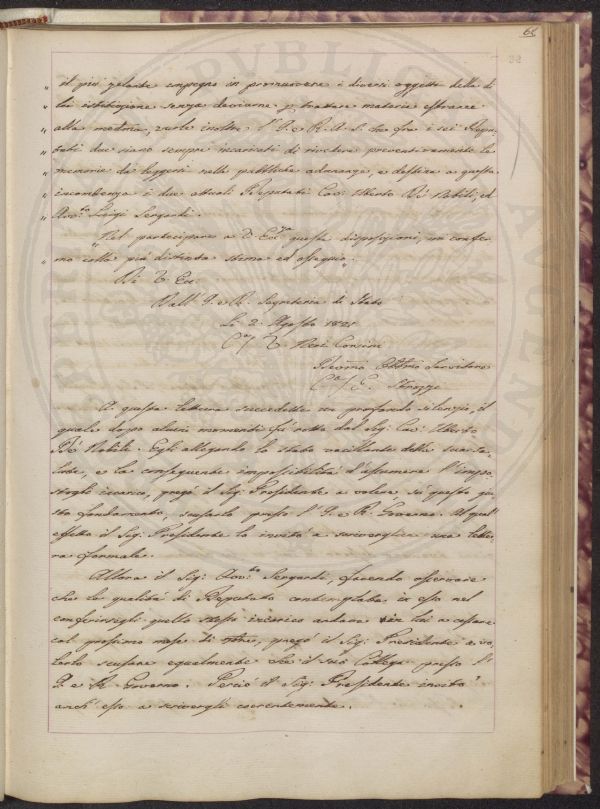 68
„ il più zelante impegno in promuovere i diversi oggetti della di
„ lui istituzione senza deviarne p. trattare materie estranee
„ alla medema, vuole inoltre l'I. e R. A. S. che fra i suoi Depu-
„ tati due siano sempre incaricati di rivedere preventivamente le
„ memorie da leggersi nelle pubbliche adunanze, e destina a questa
„ incombenza i due attuali Deputati Cav: Alberto Bí Nobili, ed
„ Avv:to Luigi Sergardi.
„ Nel partecipare a V. Ecc. queste disposizioni, mi confer-
„ mo colla più distinta stima ed ossequio.
Di V. Ecc.
Dall' I. e R. Segreteria di Stato
Li 2. Agosto 1821
C.a/ V. Neri Corsini
Devmo Obbmo Servitore
C.a/ Strozzi
A questa lettura succedette un profondo silenzio, il
quale dopo alcuni momenti fu rotto dal Sig: Cav: Alberto
Bí Nobili. Egli allegando lo stato vacillante della sua sa-
lute, e la conseguente impossibilità d'assumere l'impo-
stogli incarico, pregò il Sig: Presidente a volere, su questo giu-
sto fondamento, scusarlo presso l'I. e R. Governo. Al qual'
effetto il Sig: Presidente lo invitò a scrivergliene una lette-
ra formale.
Allora il Sig: Avv:to Sergardi, facendo osservare
che la qualità di Deputato contemplata in esso nel
conferirsigli quello stesso incarico andava in lui a cessare
col prossimo mese di 9bre, pregò il Sig: Presidente a vo-
lerlo scusare egualmente che il suo Collega presso l'
I. e R. Governo. Perciò il Sig: Presidente invitò
anch' esso a scrivergli coerentemente.